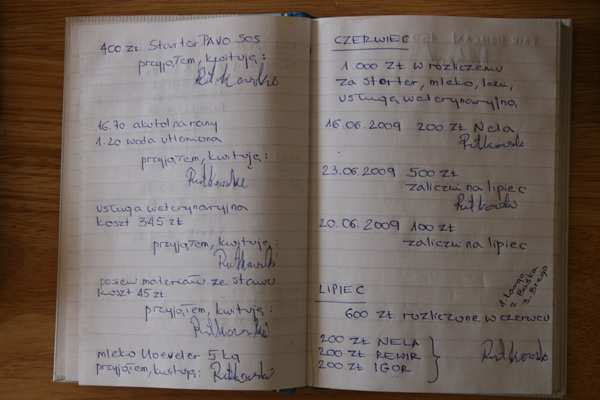 400 zł Starter PAVO SOS
przyjąłem, kwituję:
Rutkowski
16.70 alkofoparany
1.20 woda utleniona
przyjąłem, kwituję:
Rutkowski
usługa weterynaryjna
koszt 345 zł
przyjąłem, kwituję:
Rutkowski
posiew materiału ze stawu
koszt 45 zł
przyjąłem, kwituję:
Rutkowski
mleko 5 kg
przyjąłem, kwituję: Rutkowski
CZERWIEC
1.000 ZŁ w rozliczeniu
za starter, mleko,
usługą weterynaryjną
16.06.2009 200 ZŁ Nela
Rutkowski
23.06.2009 500 ZŁ
zaliczki na lipiec
Rutkowski
20.06.2009 100 ZŁ
zaliczki na lipiec
1.
2.
3.
LIPIEC
600 ZŁ rozliczone w czerwcu
200 ZŁ NELA
200 ZŁ REWIR
200 ZŁ IGOR
Rutkowski